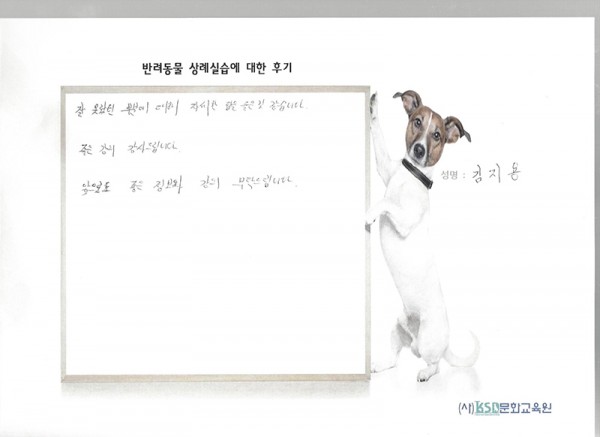 반려동물 상례실습에 대한 후기
잘 몰랐던 부분에 대해 자세한 얻은 것 같습니다.
좋은 강의 감사드립니다.
앞으로도 좋은 정보와 강의 부탁드립니다.
성명 : 김지용
(사)KSD문화교육원